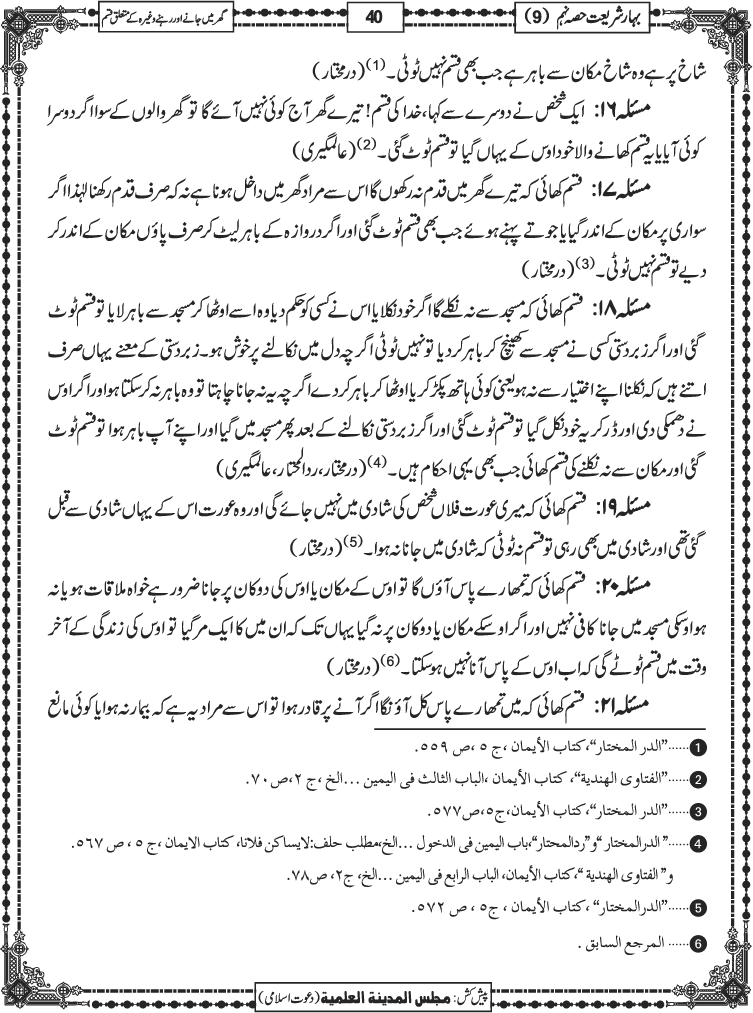 بہار شریعت حصہ نہم (9)
40
گھر میں جانے اور رہنے وغیرہ کے متعلق قسم
شاخ پر ہے وہ شاخ مکان سے باہر ہے جب بھی قسم نہیں ٹوٹی۔(1) (درمختار)
مسئلہ ۱۶: ایک شخص نے دوسرے سے کہا، خدا کی قسم! تیرے گھر آج کوئی نہیں آئے گا تو گھر والوں کے سوا اگر دوسرا
کوئی آیا یا یہ قسم کھانے والا خود اوس کے یہاں گیا تو قسم ٹوٹ گئی۔(2) (عالمگیری)
مسئلہ ۱۷: قسم کھائی کہ تیرے گھر میں قدم نہ رکھوں گا اس سے مراد گھر میں داخل ہونا ہے نہ کہ صرف قدم رکھنا لہٰذا اگر
سواری پر مکان کے اندر گیا یا جوتے پہنے ہوئے جب بھی قسم ٹوٹ گئی اور اگر دروازہ کے باہر لیٹ کر صرف پاؤں مکان کے اندر کر
دیے تو قسم نہیں ٹوٹی۔(3) (درمختار)
مسئلہ ۱۸: قسم کھائی کہ مسجد سے نہ نکلے گا اگر خود نکلا یا اس نے کسی کو حکم دیا وہ اسے اوٹھا کر مسجد سے باہر لایا تو قسم ٹوٹ
گئی اور اگر زبردستی کسی نے مسجد سے کھینچ کر باہر کر دیا تو نہیں ٹوٹی اگرچہ دل میں نکالنے پر خوش ہو۔ زبردستی کے معنے یہاں صرف
اتنے ہیں کہ نکلنا اپنے اختیار سے نہ ہو یعنی کوئی ہاتھ پکڑ کر یا اوٹھا کر باہر کر دے اگرچہ یہ نہ جانا چاہتا تو وہ باہر نہ کر سکتا ہو اور اگر اوس
نے دھمکی دی اور ڈر کر یہ خود نکل گیا تو قسم ٹوٹ گئی اور اگر زبردستی نکالنے کے بعد پھر مسجد میں گیا اور اپنے آپ باہر ہوا تو قسم ٹوٹ
گئی اور مکان سے نہ نکلنے کی قسم کھائی جب بھی یہی احکام ہیں۔(4) (درمختار، ردالمحتار، عالمگیری)
مسئلہ ۱۹: قسم کھائی کہ میری عورت فلاں شخص کی شادی میں نہیں جائے گی اور وہ عورت اس کے یہاں شادی سے قبل
گئی تھی اور شادی میں بھی رہی تو قسم نہ ٹوٹی کہ شادی میں جانا نہ ہوا۔(5) (درمختار)
مسئلہ ۲۰: قسم کھائی کہ تمھارے پاس آؤں گا تو اوس کے مکان یا اوس کی دوکان پر جانا ضرور ہے خواہ ملاقات ہو یا نہ
ہو اوسکی مسجد میں جانا کافی نہیں اور اگر اوسکے مکان یا دوکان پر نہ گیا یہاں تک کہ ان میں کا ایک مر گیا تو اوس کی زندگی کے آخر
وقت میں قسم ٹوٹے گی کہ اب اوس کے پاس آنا نہیں ہو سکتا۔(6) (درمختار)
مسئلہ ۲۱: قسم کھائی کہ میں تمھارے پاس کل آؤنگا اگر آنے پر قادر ہوا تو اس سے مراد یہ ہے کہ بیمار نہ ہوا یا کوئی مانع
1 ......”الدر المختار“، کتاب الأیمان، ج ٥، ص ٥٥٩.
2 ......”الفتاوی الهندیة“، کتاب الأیمان، الباب الثالث فی الیمین ...الخ، ج ٢، ص ٧٠.
3 ......”الدر المختار“، کتاب الأیمان، ج٥، ص ٥٧٧.
4 ......”الدرالمختار“ و”ردالمحتار“، باب الیمین فی الدخول ...الخ، مطلب حلف: لایساکن فلانا، کتاب الایمان، ج ٥، ص ٥٦٧.
و”الفتاوی الهندیة“، کتاب الأیمان، الباب الرابع فی الیمین ...الخ، ج٢، ص٧٨.
5 ......”الدرالمختار“، کتاب الأیمان، ج٥، ص ٥٧٢.
6 ...... المرجع السابق.
پیش کش: مجلس المدینة العلمیة (دعوت اسلامی)